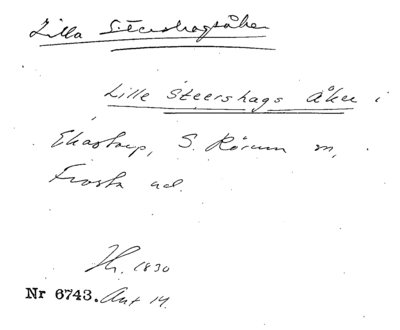 Lilla Steershagsåker
Lille Steershags åker i
Ekastorp, S. Rörum m,
Frosta ud.
Hr. 1830
Nr 6743. Ant 14.